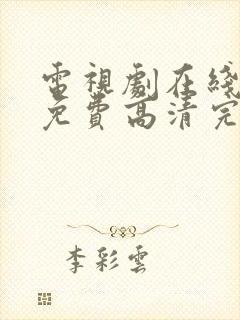 電視劇在綫
免費高清完
李彩雲